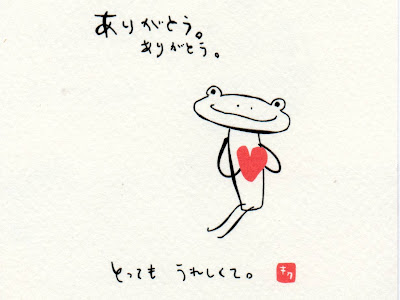 ありがとう。
ありがとう。
とっても うれしくて。
キク